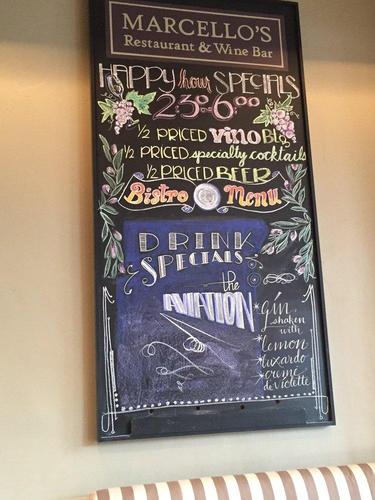 MARCELLO'S
Restaurant & Wine Bar
HAPPY hour SPECIALS
2:30-6:00
1/2 PRICED VINO Btls
1/2 PRICED specialty cocktails
1/2 PRICED BEER
Bistro Menu
DRINK
SPECIALS
the
AVIATION
*Gin
shaken
with
*lemon
*luxardo
*creme
de violette